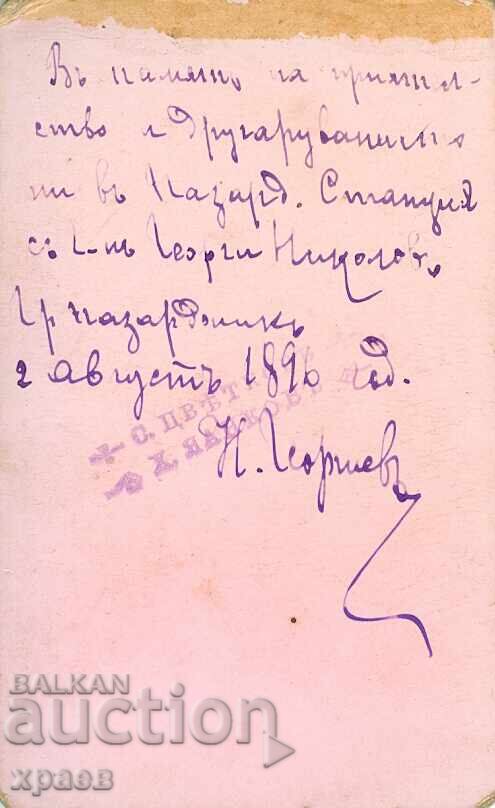 Въ память на приятел-
ство и другаруванието
ни въ Пазард. Станция
съ г-нъ Георги Николовъ,
Гр. Пазарджикъ
2 августъ 1896 год.
С. ЦВѢТ
Х. ЯНКОВЪ
Н. Георгиевъ
BALKAN
auction
храев